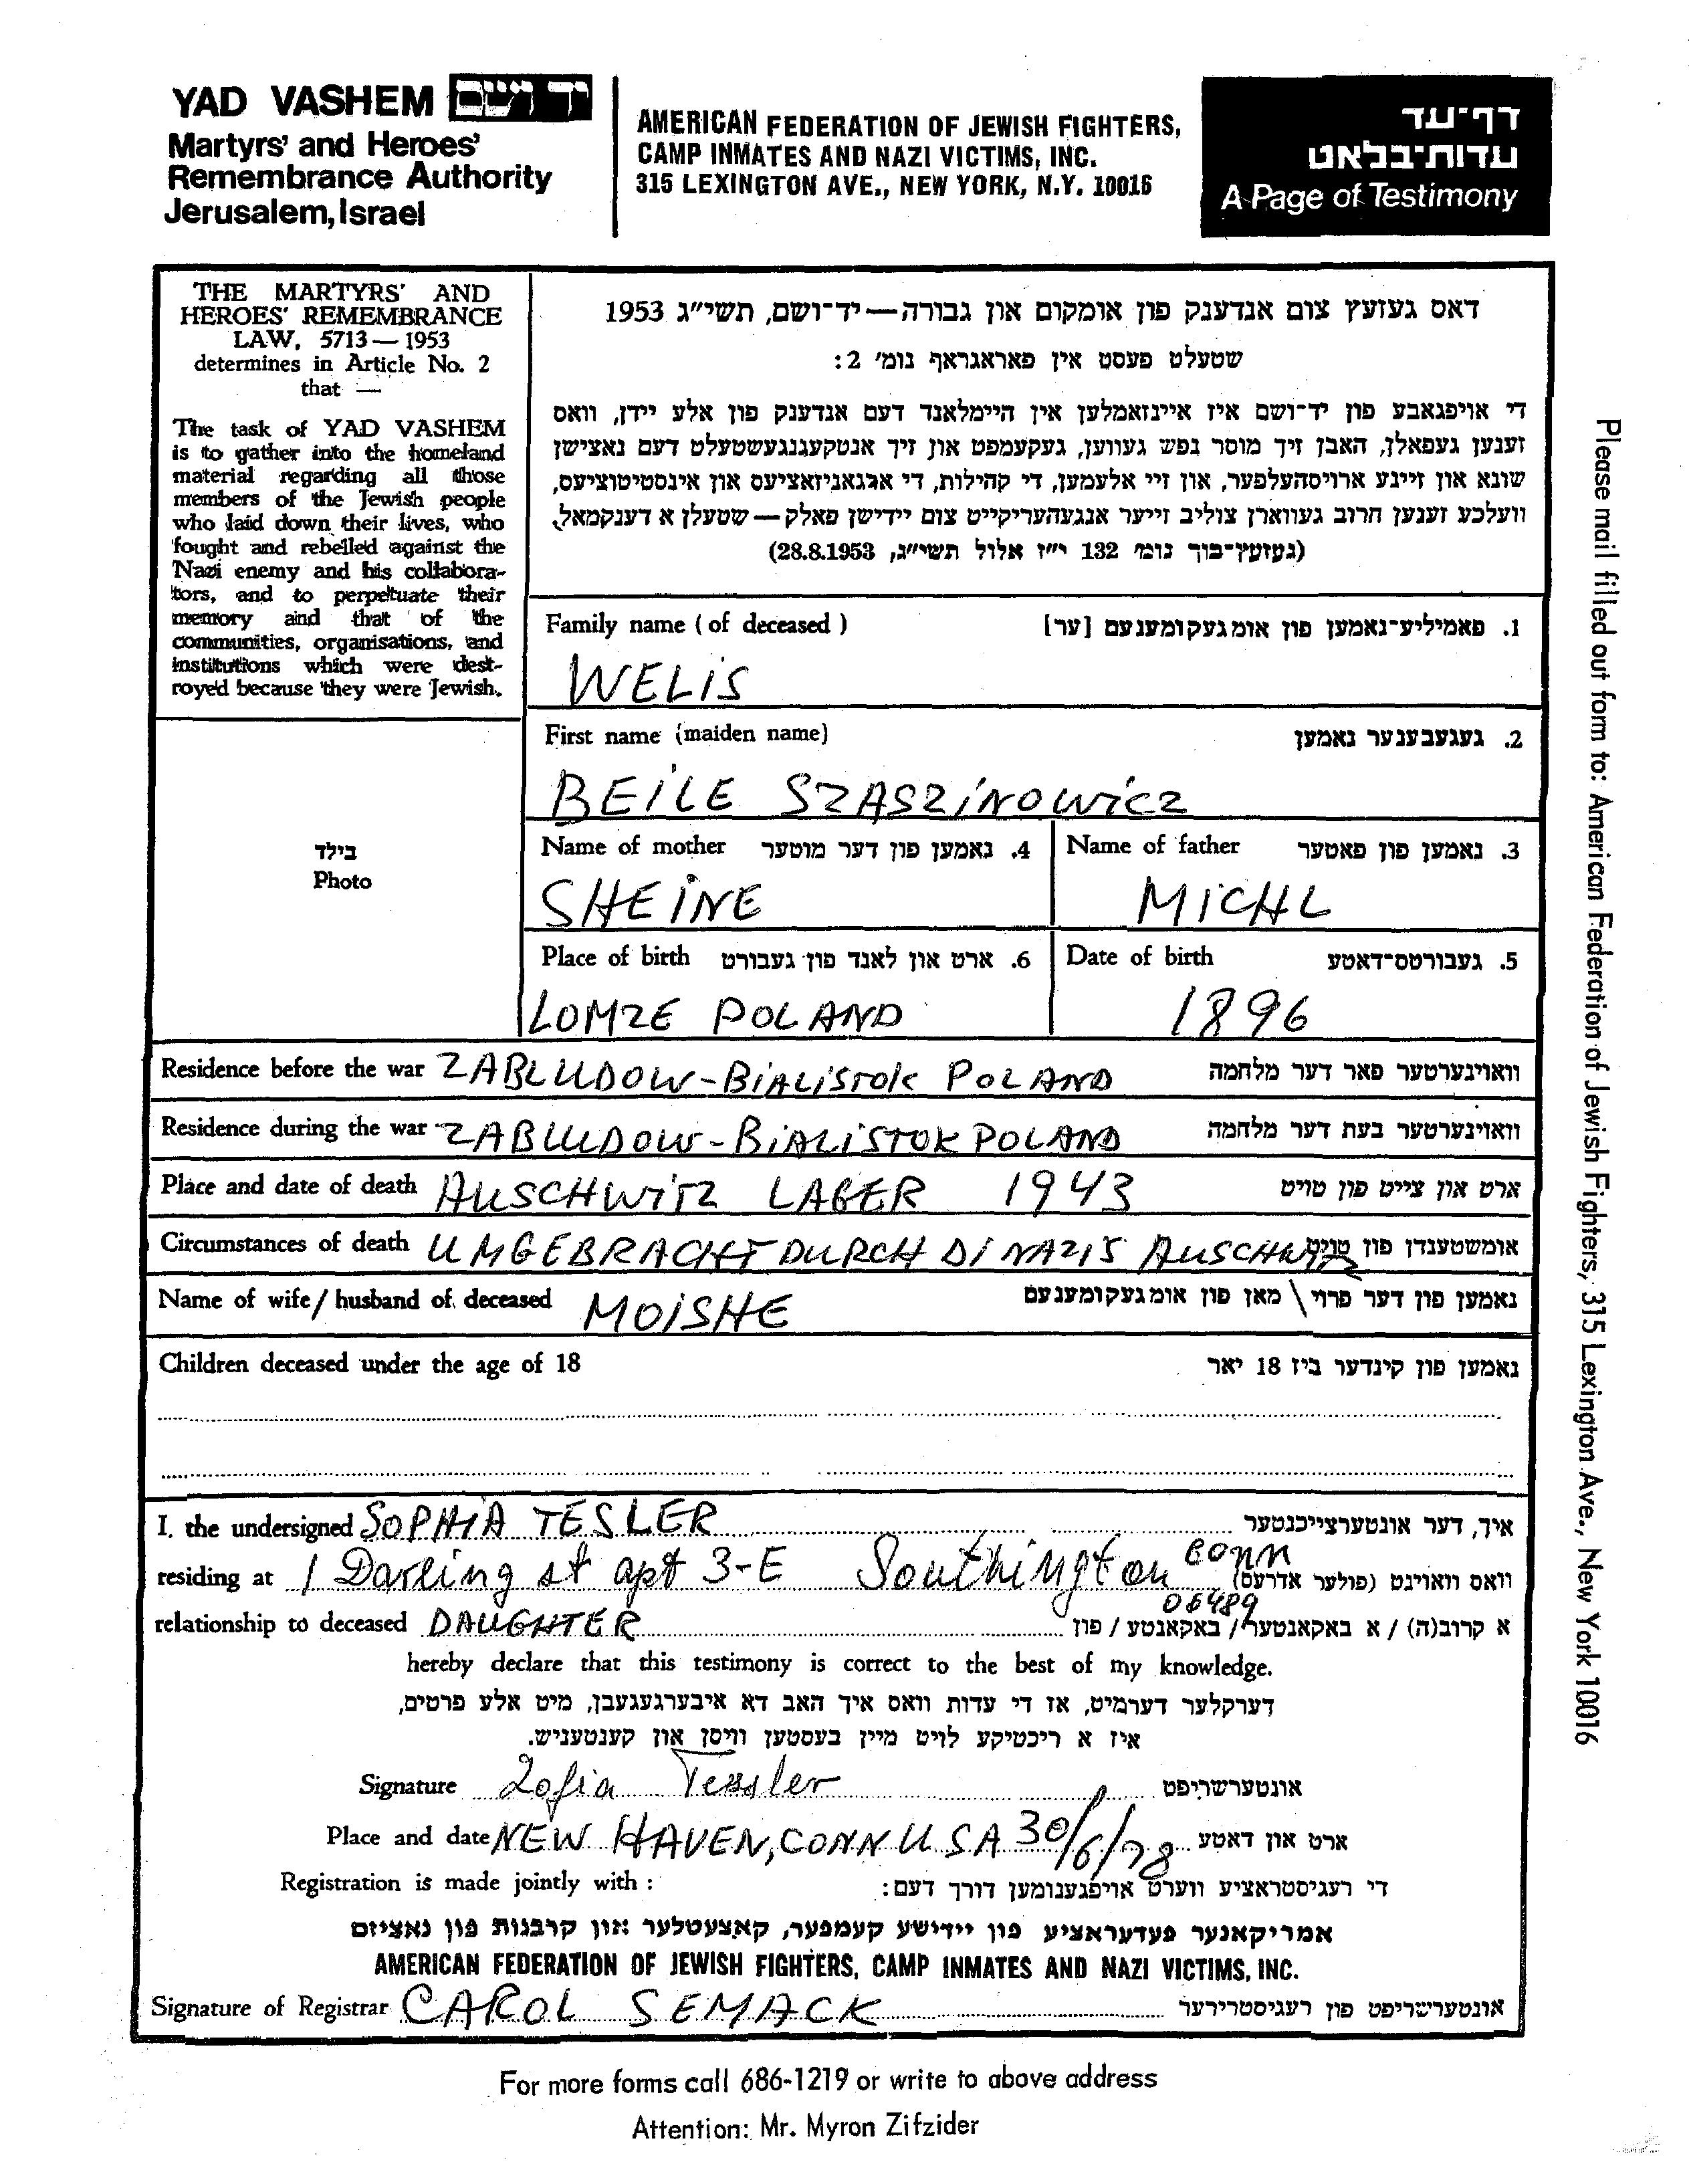 YAD VASHEM יד ושם
Martyrs' and Heroes'
Remembrance Authority
Jerusalem, Israel
AMERICAN FEDERATION OF JEWISH FIGHTERS,
CAMP INMATES AND NAZI VICTIMS, INC.
315 LEXINGTON AVE., NEW YORK, N.Y. 10016
דף־עד
עדות־בלאט
A Page of Testimony
THE MARTYRS' AND
HEROES' REMEMBRANCE
LAW, 5713—1953
determines in Article No. 2
that —
The task of YAD VASHEM
is to gather into the homeland
material regarding all those
members of the Jewish people
who laid down their lives, who
fought and rebelled against the
Nazi enemy and his collabora-
tors, and to perpetuate their
memory and that of the
communities, organisations, and
institutions which were dest-
royed because they were Jewish.
דאס געזעץ צום אנדענק פון אומקום און גבורה — יד־ושם, תשי"ג 1953
שטעלט פעסט אין פאראגראף נומ' 2:
די אויפגאבע פון יד־ושם איז איינזאמלען אין היימלאנד דעם אנדענק פון אלע יידן, וואס
זענען געפאלן, האבן זיך מוסר נפש געווען, געקעמפט און זיך אנטקעגנגעשטעלט דעם נאצישן
שונא און זיינע ארויסהעלפער, און זיי אלעמען, די קהילות, די ארגאניזאציעס און אינסטיטוציעס,
וועלכע זענען חרוב געווארן צוליב זייער אנגעהעריקייט צום יידישן פאלק — שטעלן א דענקמאל.
(געזעץ־בוך נומ' 132 י"ז אלול תשי"ג, 28.8.1953)
Family name (of deceased) 1. פאמיליע־נאמען פון אומגעקומענעם [ער]
WELIS
First name (maiden name) 2. געגעבענער נאמען
BEILE SZASZINOWICZ
בילד
Photo
Name of mother 4. נאמען פון דער מוטער Name of father 3. נאמען פון פאטער
SHEINE MICHL
Place of birth 6. ארט און לאנד פון געבורט Date of birth 5. געבורטס־דאטע
LOMZE POLAND 1896
Residence before the war ZABLUDOW-BIALISTOK POLAND וואוינערטער פאר דער מלחמה
Residence during the war ZABLUDOW-BIALISTOK POLAND וואוינערטער בעת דער מלחמה
Place and date of death AUSCHWITZ LAGER 1943 ארט און צייט פון טויט
Circumstances of death UMGEBRACHT DURCH DI NAZIS AUSCHWITZ אומשטענדן פון טויט
Name of wife/ husband of deceased MOISHE נאמען פון דער פרוי \ מאן פון אומגעקומענעם
Children deceased under the age of 18 נאמען פון קינדער ביז 18 יאר
I, the undersigned SOPHIA TESLER איך, דער אונטערצייכנטער
residing at 1 Darling st apt 3-E Southington conn 06489 וואס וואוינט (פולער אדרעס)
relationship to deceased DAUGHTER א קרוב(ה) / א באקאנטער / באקאנטע / פון
hereby declare that this testimony is correct to the best of my knowledge.
דערקלער דערמיט, אז די עדות וואס איך האב דא איבערגעגעבן, מיט אלע פרטים,
איז א ריכטיקע לויט מיין בעסטען וויסן און קענטעניש.
Signature Zofia Tessler אונטערשריפט
Place and date NEW HAVEN, CONN USA 30/6/78 ארט און דאטע
Registration is made jointly with : די רעגיסטראציע ווערט אויפגענומען דורך דעם:
אמריקאנער פעדעראציע פון יידישע קעמפער, קאצעטלער און קרבנות פון נאציזם
AMERICAN FEDERATION OF JEWISH FIGHTERS, CAMP INMATES AND NAZI VICTIMS, INC.
Signature of Registrar CAROL SEMACK אונטערשריפט פון רעגיסטרירער
For more forms call 686-1219 or write to above address
Attention: Mr. Myron Zifzider
Please mail filled out form to: American Federation of Jewish Fighters, 315 Lexington Ave., New York 10016